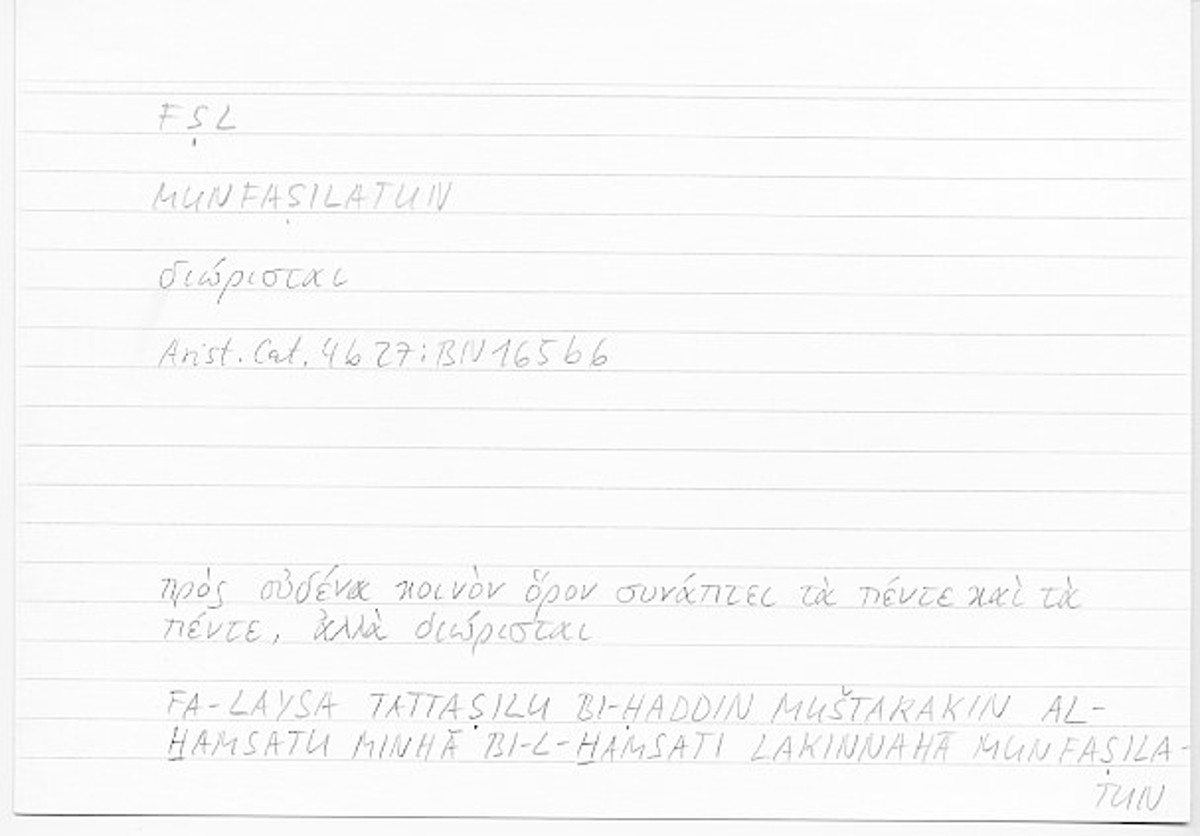 FṢL
MUNFAṢILATUN
διώρισται
Arist. Cat. 4b27: BN 165b6
πρὸς οὐδένα κοινὸν ὅρον συνάπτει τὰ πέντε καὶ τὰ
πέντε, ἀλλὰ διώρισται
FA-LAYSA TATTAṢILU BI-ḤADDIN MUŠTARAKIN AL-
H̲AMSATU MINHĀ BI-L-H̲AMSATI LAKINNAHĀ MUNFAṢILA-
TUN